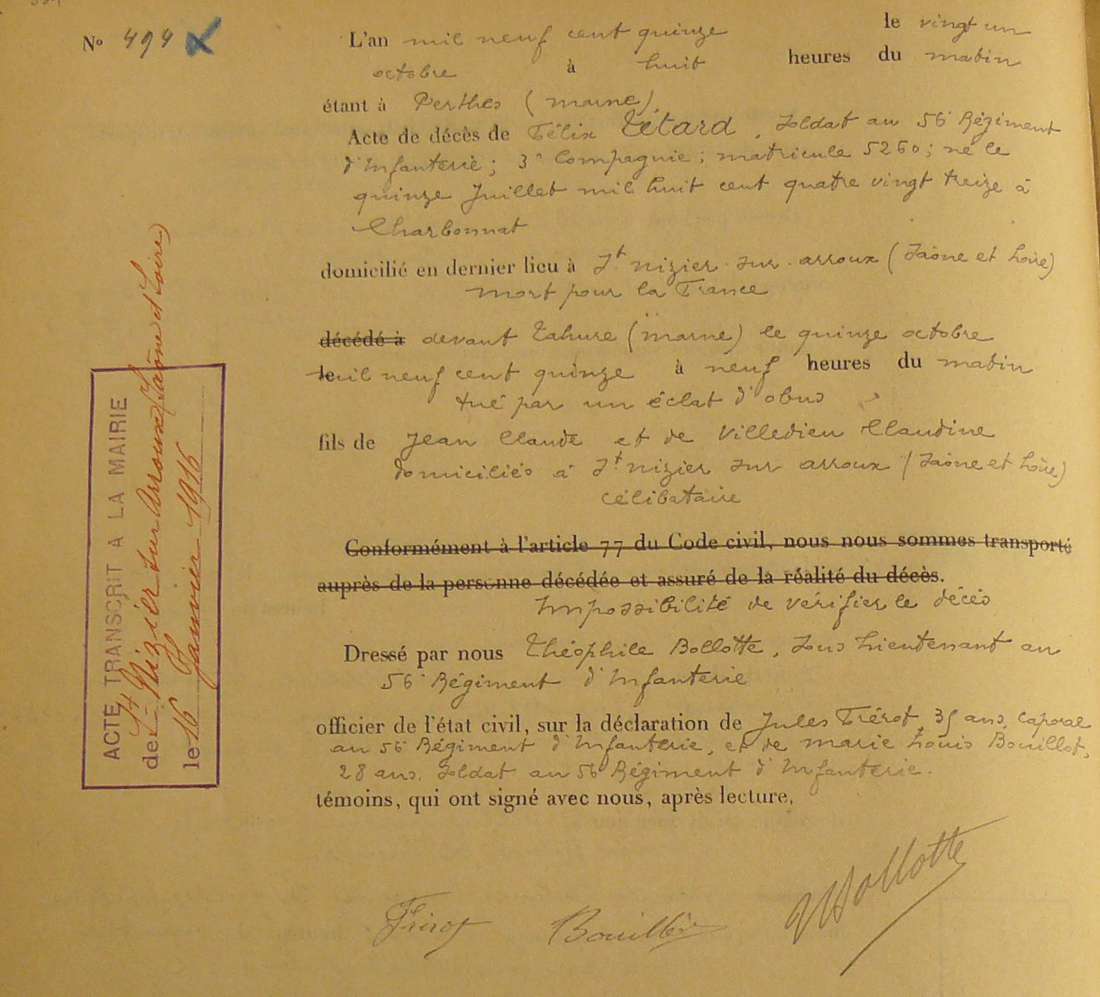 N° 494
L'an mil neuf cent quinze le vingt un
octobre à huit heures du matin
étant à Perthes (marne)
Acte de décès de Félix Tétard, Soldat au 56e Régiment
d'Infanterie; 3e Compagnie; matricule 5260; né le
quinze Juillet mil huit cent quatre vingt treize à
Charbonnat
domicilié en dernier lieu à St nizier sur arroux (Saône et Loire)
mort pour la France
décédé à devant Tahure (marne) le quinze octobre
le mil neuf cent quinze à neuf heures du matin
tué par un éclat d'obus
fils de Jean Claude et de Villedieu Claudine
domiciliés à St nizier sur arroux (Saône et Loire)
célibataire
Conformément à l'article 77 du Code civil, nous nous sommes transporté
auprès de la personne décédée et assuré de la réalité du décès.
Impossibilité de vérifier le décès
Dressé par nous Théophile Bollotte, Sous Lieutenant au
56e Régiment d'Infanterie
officier de l'état civil, sur la déclaration de Jules Frérot, 35 ans, caporal
au 56e Régiment d'Infanterie, et de marie Louis Bouillot,
28 ans, Soldat au 56e Régiment d'Infanterie.
témoins, qui ont signé avec nous, après lecture.
Frérot Bouillot Bollotte
ACTE TRANSCRIT A LA MAIRIE
de St Nizier sur Arroux (Saône et Loire)
le 16 Janvier 1916